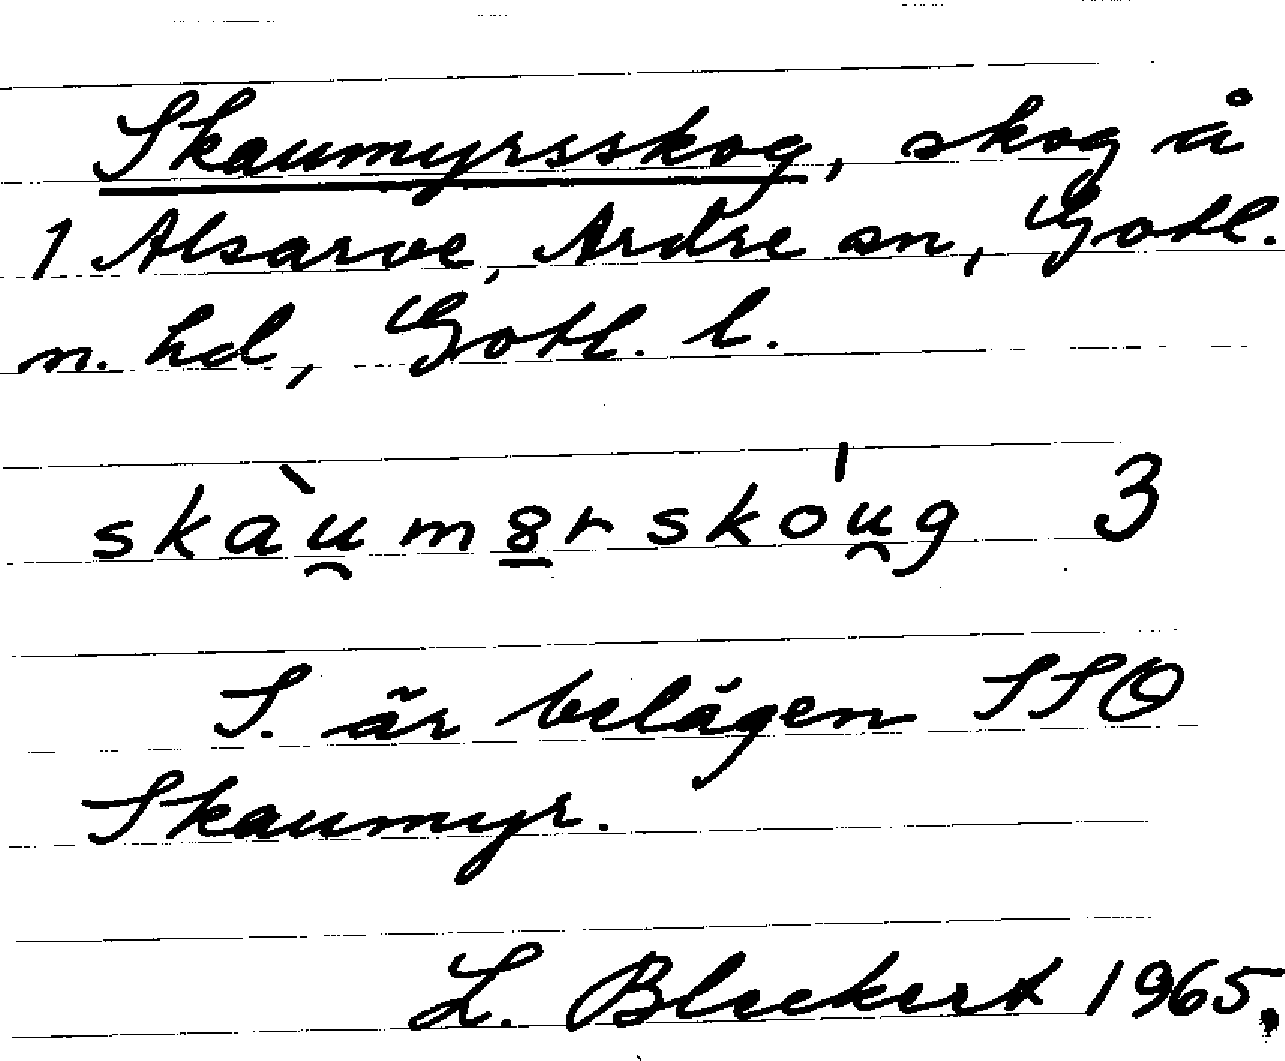 Skaumyrsskog, skog å
1 Alsarve, Ardre sn, Gotl.
n. hd, Gotl. l.
skàu̯m8̲rskóu̯g 3
S. är belägen SSO
Skaumyr.
L. Bleckert 1965.